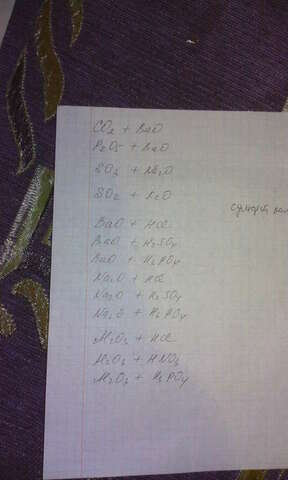 CO2 + BaO
P2O5 + BaO
SO3 + Na2O
SO2 + K2O
сульфат
BaO + HCl
BaO + H2SO4
BaO + H3PO4
Na2O + HCl
Na2O + H2SO4
Na2O + H3PO4
Al2O3 + HCl
Al2O3 + HNO3
Al2O3 + H3PO4